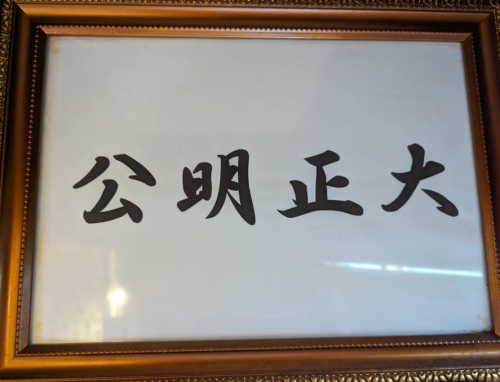 公明正大